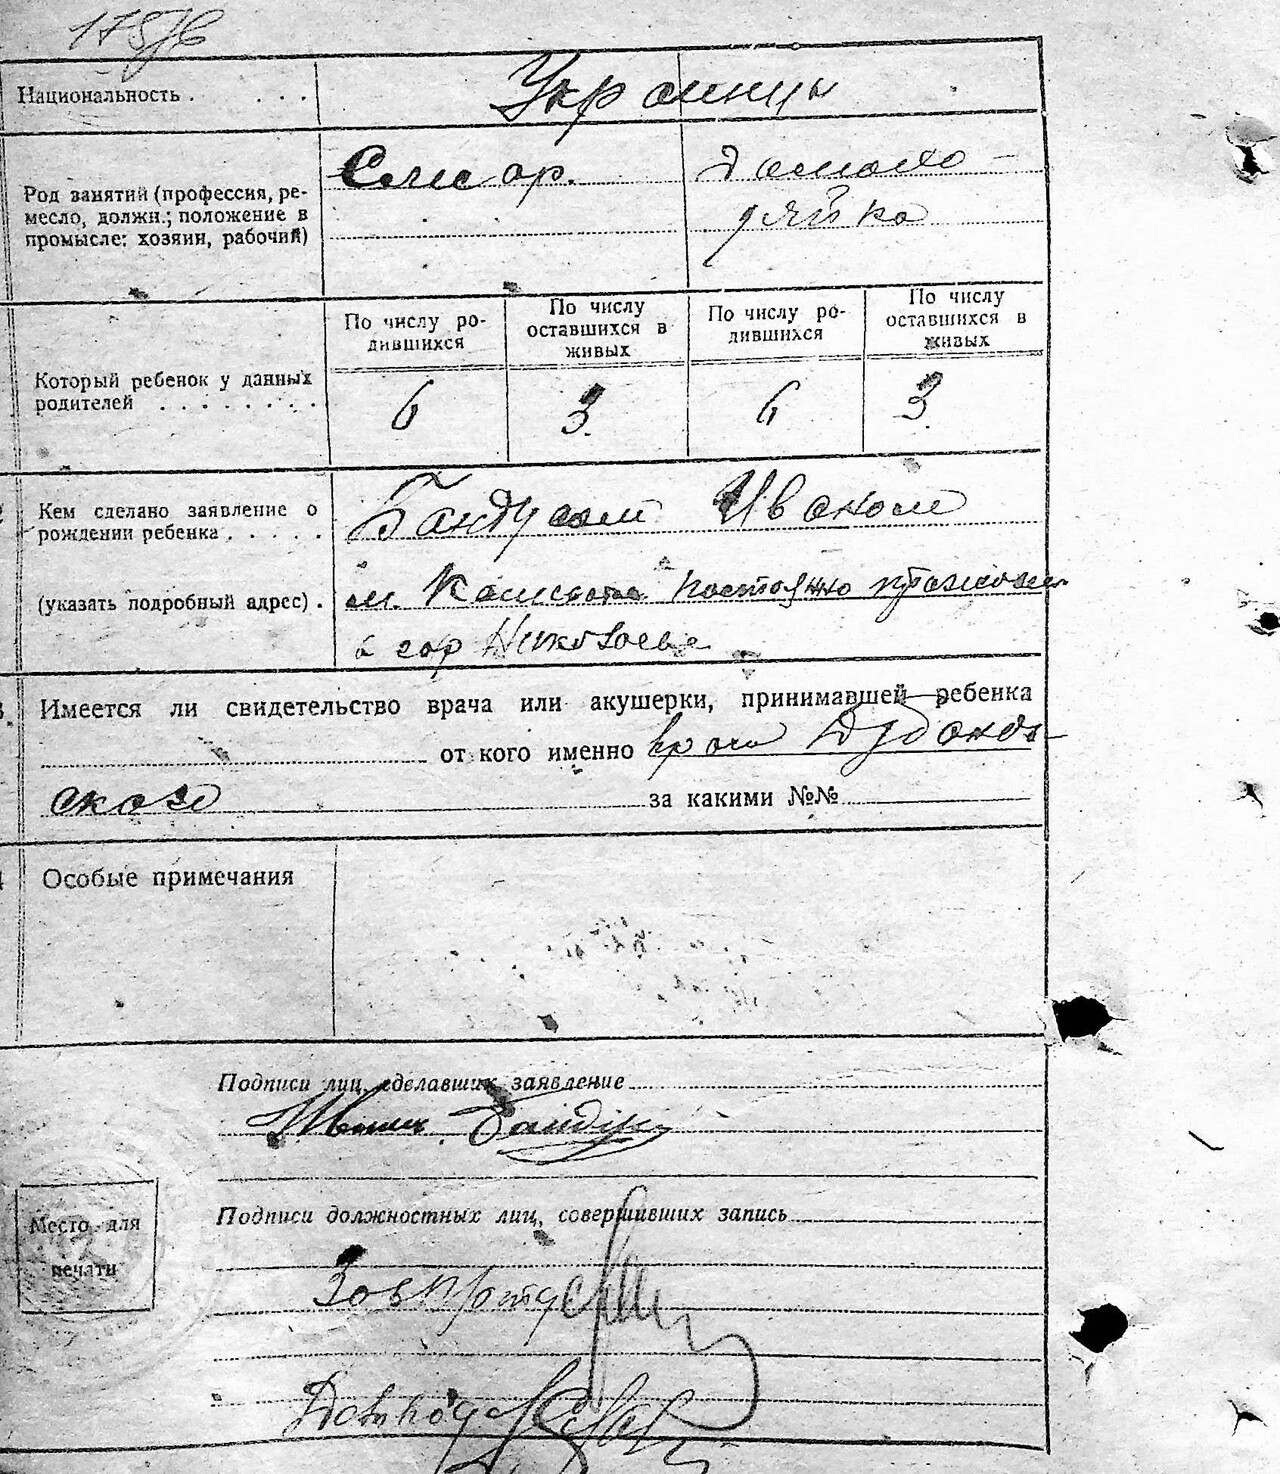 175/6
Национальность . . . .
Украинцы
Род занятий (профессия, ре-
месло, должн.; положение в
промысле: хозяин, рабочий)
Слесар.
домохо-
зяйка
Который ребенок у данных
родителей . . . . . . . .
По числу ро-
дившихся
По числу
оставшихся в
живых
По числу ро-
дившихся
По числу
оставшихся в
живых
6 3 6 3
Кем сделано заявление о
рождении ребенка . . . . .
(указать подробный адрес) .
Иваном
м. постоянно
в гор Николаеве
Имеется ли свидетельство врача или акушерки, принимавшей ребенка
от кого именно врача
ского за какими №№
Особые примечания
Подписи лиц, сделавших заявление
Подписи должностных лиц, совершивших запись
Место для
печати